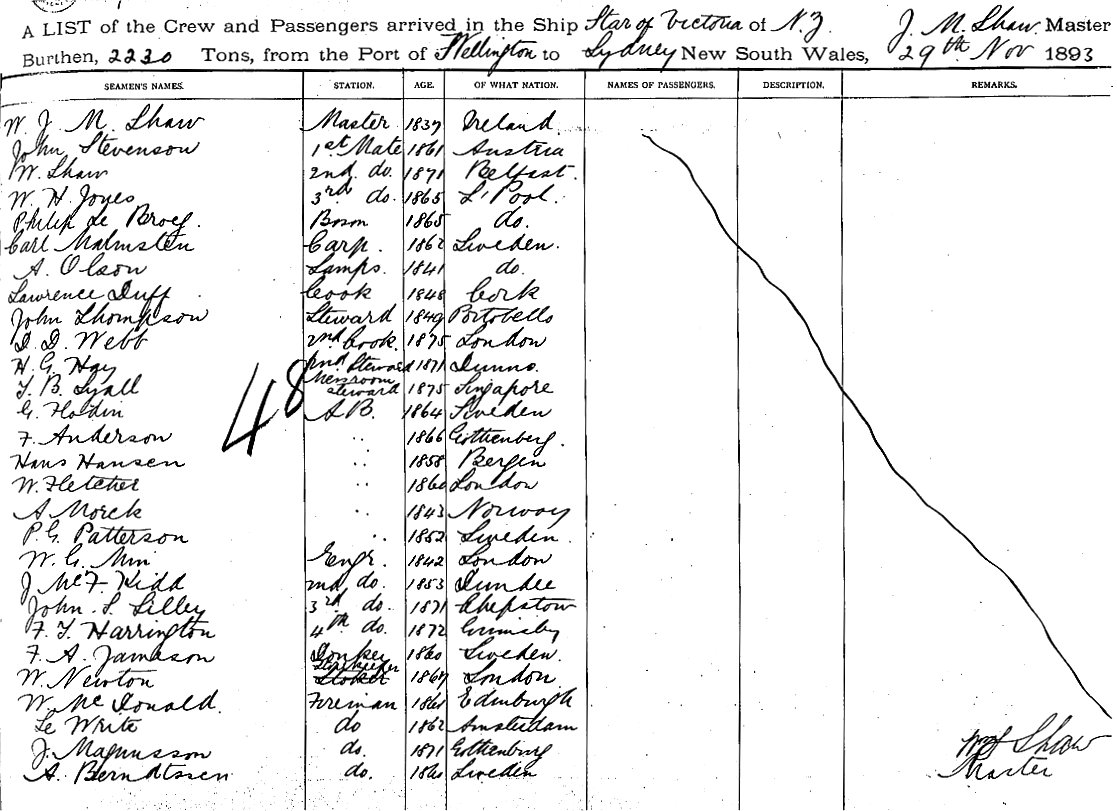 A LIST of the Crew and Passengers arrived in the Ship Star of Victoria of N.Z. J. M. Shaw Master
Burthen, 2230 Tons, from the Port of Wellington to Sydney New South Wales, 29th Nov 1893
SEAMEN'S NAMES. STATION. AGE. OF WHAT NATION. NAMES OF PASSENGERS. DESCRIPTION. REMARKS.
W. J. M. Shaw Master 1837 Ireland
John Stevenson 1st Mate 1861 Austria
W. Shaw 2nd do. 1871 Belfast.
W. H. Jones 3rd do. 1865 L'Pool.
Philip Le Brocq. Bosn 1865 do.
Carl Malmsten Carp. 1862 Sweden.
A. Olson Lamps. 1841 do.
Lawrence Duff Cook 1848 Cork
John Thompson Steward 1849 Portobello
D. D. Webb 2nd Cook. 1875 London
H. G. Hay 2nd Steward 1871
T. B. Lyall Messroom steward 1875 Singapore
G. A.B. 1864 Sweden
48
F. Anderson .. 1866 Gothenberg.
Hans Hansen .. 1858 Bergen
W. Fletcher .. 1860 London
A Morck .. 1843 Norway
P. G. Patterson .. 1852 Sweden
W. G. Engr. 1842 London
J McF. Kidd 2nd do. 1853 Dundee
John S. Lilley 3rd do. 1871 Chepstow
F. T. Harrington 4th do. 1872 Grimsby
F. A. Jamason Donkey 1860 Sweden.
W. Newton Storkeeper London.
W. McDonald. Fireman Edinburgh
Le Write do 1862 Amsterdam
J. Magnusson do. 1871 Gothenburg
A. Berndtssen do. Sweden
Shaw
Master